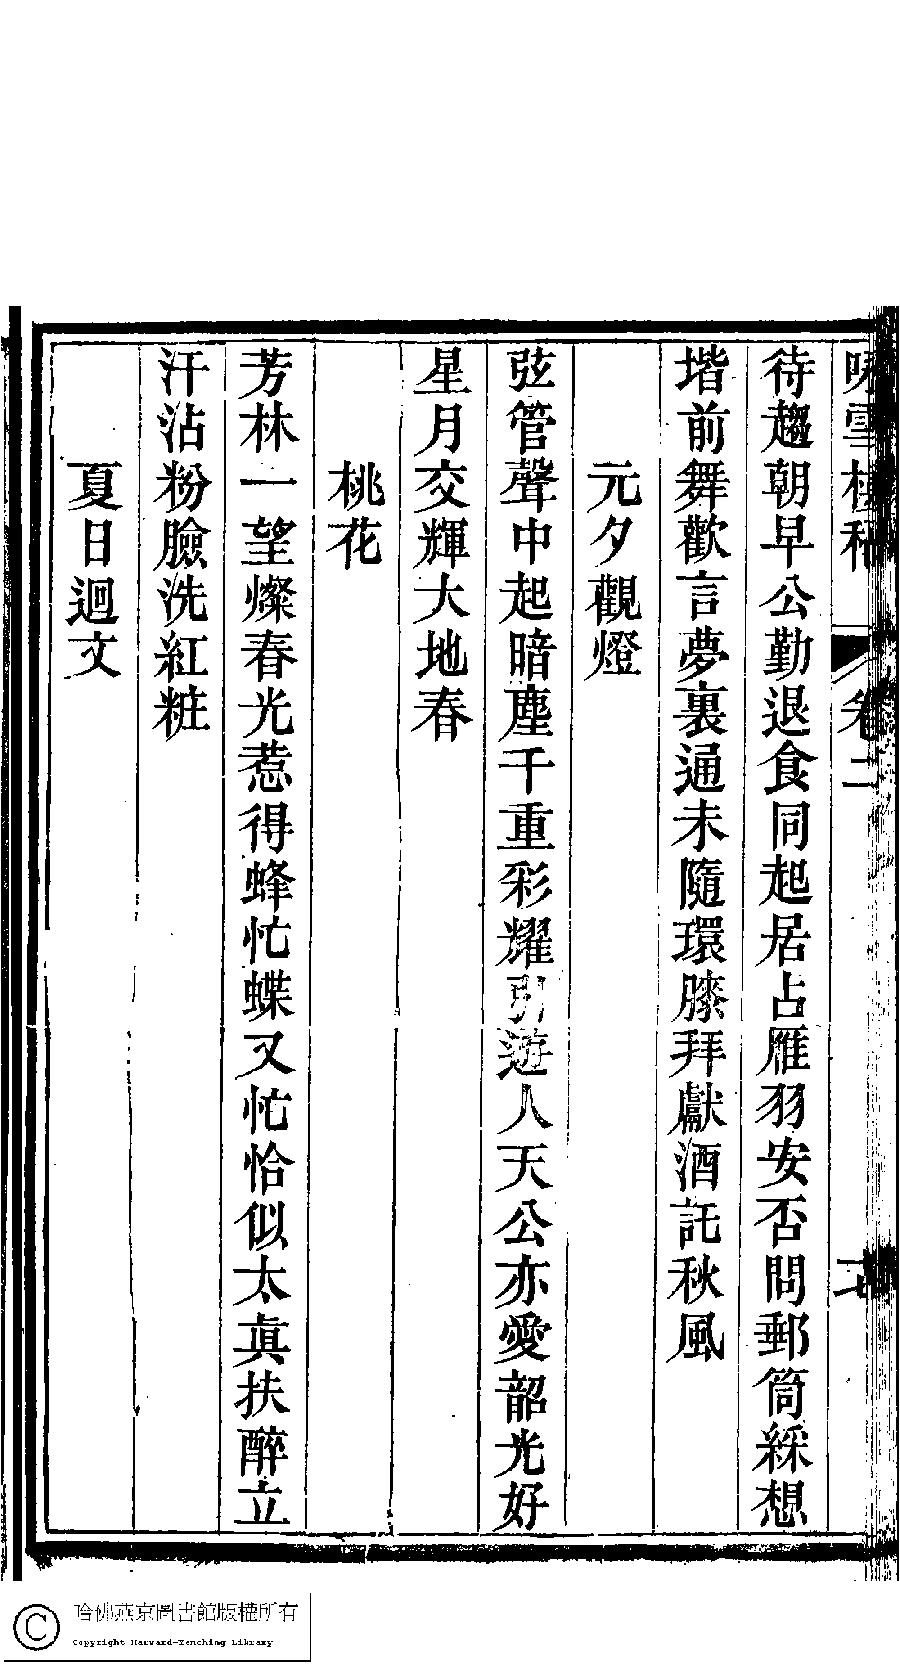 待趨朝早公勤退食同起居占雁羽安否問郵筒綵想
堦前舞歡言夢裏通未隨環膝拜獻酒託秋風
元夕觀燈
弦管聲中起暗塵千重彩耀引遊人天公亦愛韶光好
星月交輝大地春
桃花
芳林一望燦春光惹得蜂忙蝶又忙恰似太眞扶醉立
汗沾粉臉洗紅粧
夏日迴文
哈佛燕京圖書館版權所有
Copyright Harvard-Yenching Library